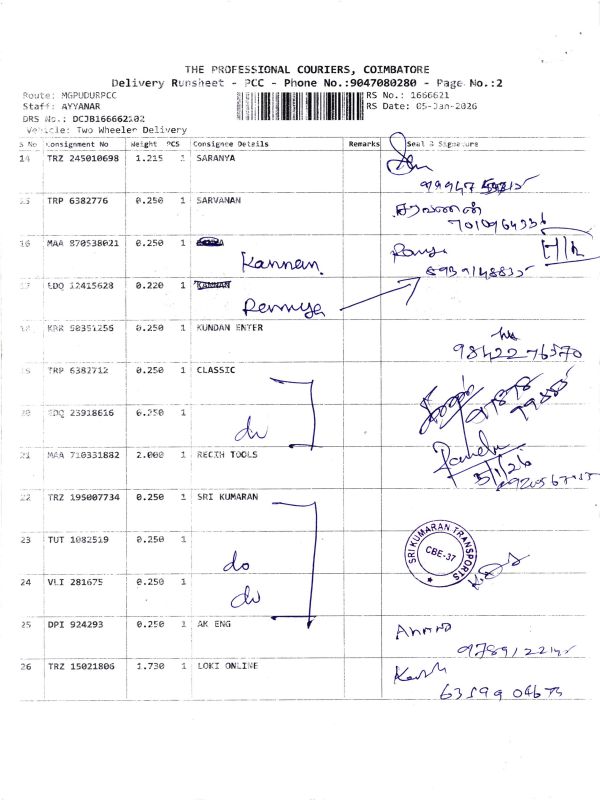 THE PROFESSIONAL COURIERS, COIMBATORE
Delivery Runsheet - PCC - Phone No.:9047080280 - Page No.:2
Route: MGPUDURPCC RS No.: 1666621
Staff: AYYANAR RS Date: 05-Jan-2026
DRS No.: DCJB166662102
Vehicle: Two Wheeler Delivery
S No Consignment No Weight PCS Consignee Details Remarks Seal & Signature
14 TRZ 245010698 1.215 1 SARANYA
15 TRP 6382776 0.250 1 SARVANAN சரவணன்
7010964336
16 MAA 870538021 0.250 1
Kannan
17 EDQ 12415628 0.220 1 KANNAN
Remya
18 KRR 50351256 0.250 1 KUNDAN ENTER
9842276570
19 TRP 6382712 0.250 1 CLASSIC
20 EDQ 23918616 6.250 1
do
21 MAA 710331882 2.000 1 RECIH TOOLS
5/1/26
22 TRZ 195007734 0.250 1 SRI KUMARAN
23 TUT 1082519 0.250 1 do
SRI KUMARAN TRANSPORTS
CBE-37
24 VLI 281675 0.250 1 do
25 DPI 924293 0.250 1 AK ENG
26 TRZ 15021806 1.730 1 LOKI ONLINE